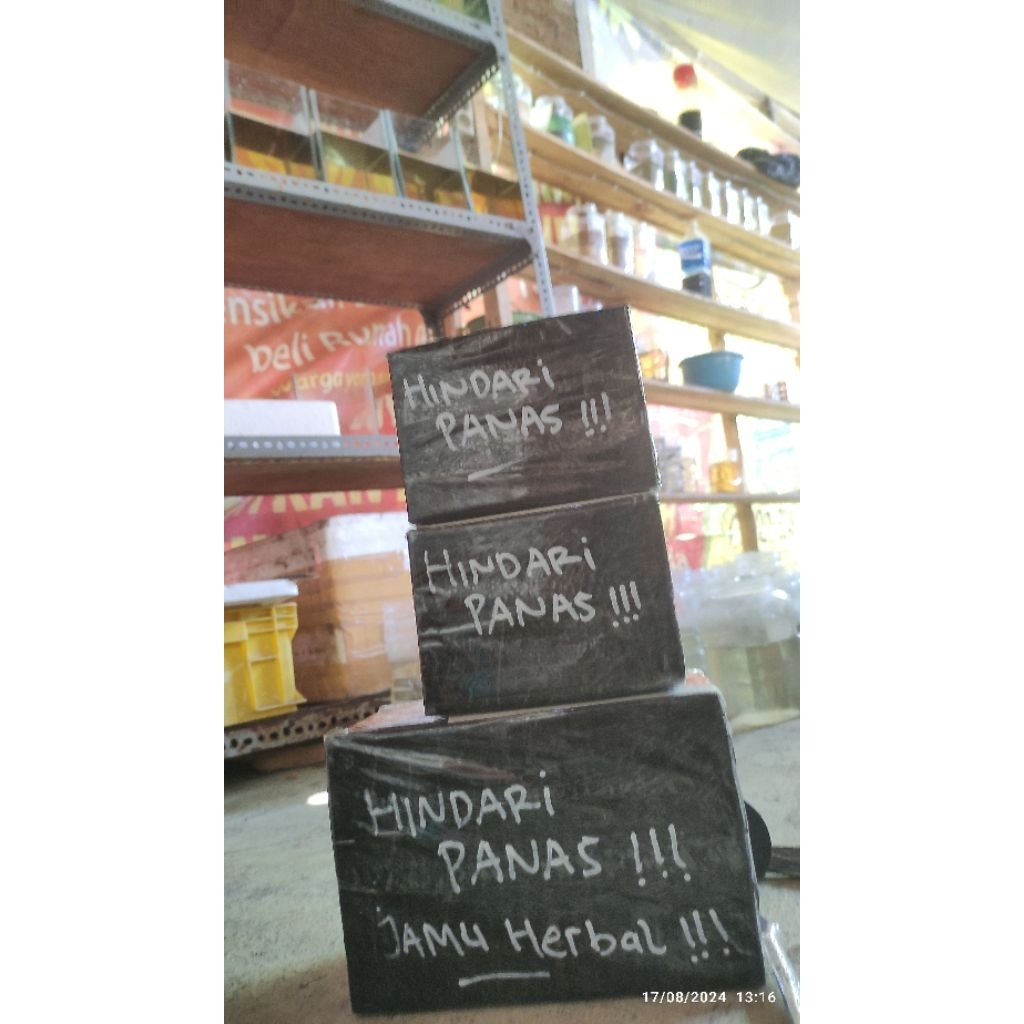 beli Rumah
HINDARi
PANAS !!!
HINDARi
PANAS !!!
HINDARi
PANAS !!!
JAMU Herbal !!!
17/08/2024 13:16